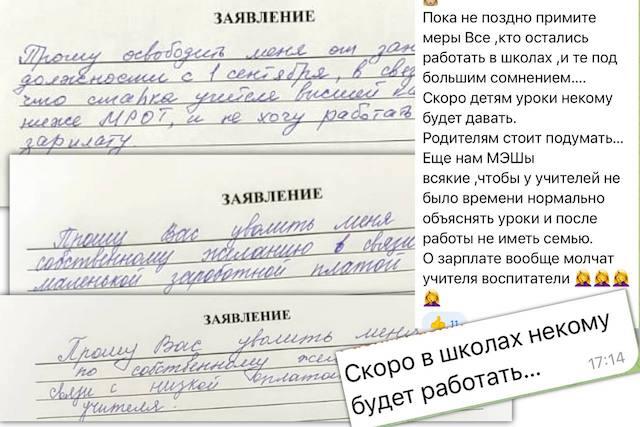 ЗАЯВЛЕНИЕ
Прошу освободить меня от зан
должности с 1 сентября, в свя
что ставка учителя высшей ка
ниже МРОТ, и не хочу работать
зарплату.
ЗАЯВЛЕНИЕ
Прошу Вас уволить меня
собственному желанию в связи
маленькой заработной платой
ЗАЯВЛЕНИЕ
Прошу Вас уволить меня
по собственному жел
связи с низкой оплатой
учителя.
Пока не поздно примите
меры Все ,кто остались
работать в школах ,и те под
большим сомнением....
Скоро детям уроки некому
будет давать.
Родителям стоит подумать...
Еще нам МЭШы
всякие ,чтобы у учителей не
было времени нормально
объяснять уроки и после
работы не иметь семью.
О зарплате вообще молчат
учителя воспитатели 🤦‍♀️🤦‍♀️🤦‍♀️
🤦‍♀️
👍 11
Скоро в школах некому
будет работать...
17:14